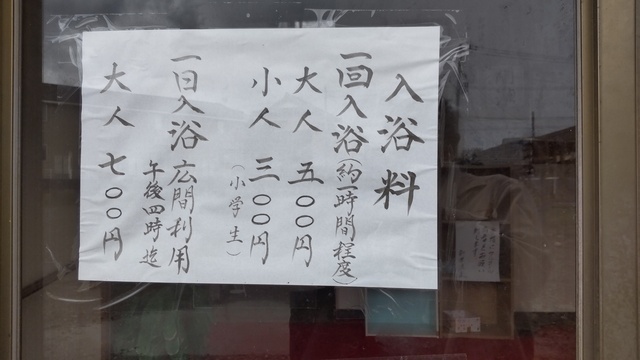 入浴料
一回入浴(約一時間程度)
大人 五〇〇円
小人 三〇〇円
(小学生)
一日入浴 広間利用
午後四時迄
大人 七〇〇円